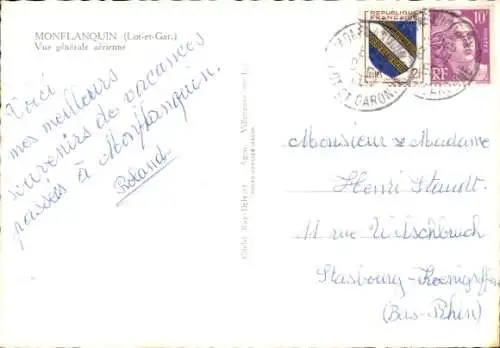 MONFLANQUIN (Lot-et-Gar.)
Vue générale aérienne
Voici
mes meilleurs
souvenirs de vacances
passées à Monflanquin.
Roland
REPUBLIQUE
FRANÇAISE
10F
RF
LOT ET GARONNE
Monsieur et Madame
Henri Staudt.
11 rue Witschbruch
Strasbourg - Koenigshoffen
(Bas-Rhin)